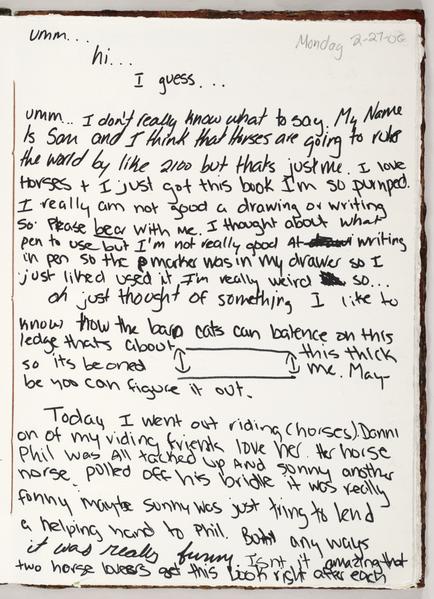 umm...
Monday 2-27-06
hi...
I guess...
umm.. I don't really know what to say. My Name
Is Sam and I think that Horses are going to rule
the world by like 2100 but thats just me. I love
Horses + I just got this book I'm so pumped.
I really am not good a drawing or writing
so. Please bear with me. I thought about what
pen to use but I'm not really good At writing
in pen so the marker was in my drawer so I
just liked used it I'm really weird so...
oh just thought of something I like to
know how the barn cats can balence on this
ledge thats about this thick
so its beoned me. May-
be you can figure it out.
Today I went out riding (horses). Danni
on of my riding friends love her. Her horse
Phil was All tacked up And sonny another
horse. pulled off his bridle it was really
funny maybe sonny was just tring to lend
a helping hand to Phil. But any ways
it was really funny. Isnt it amazing that
two horse lovers get this book right after each